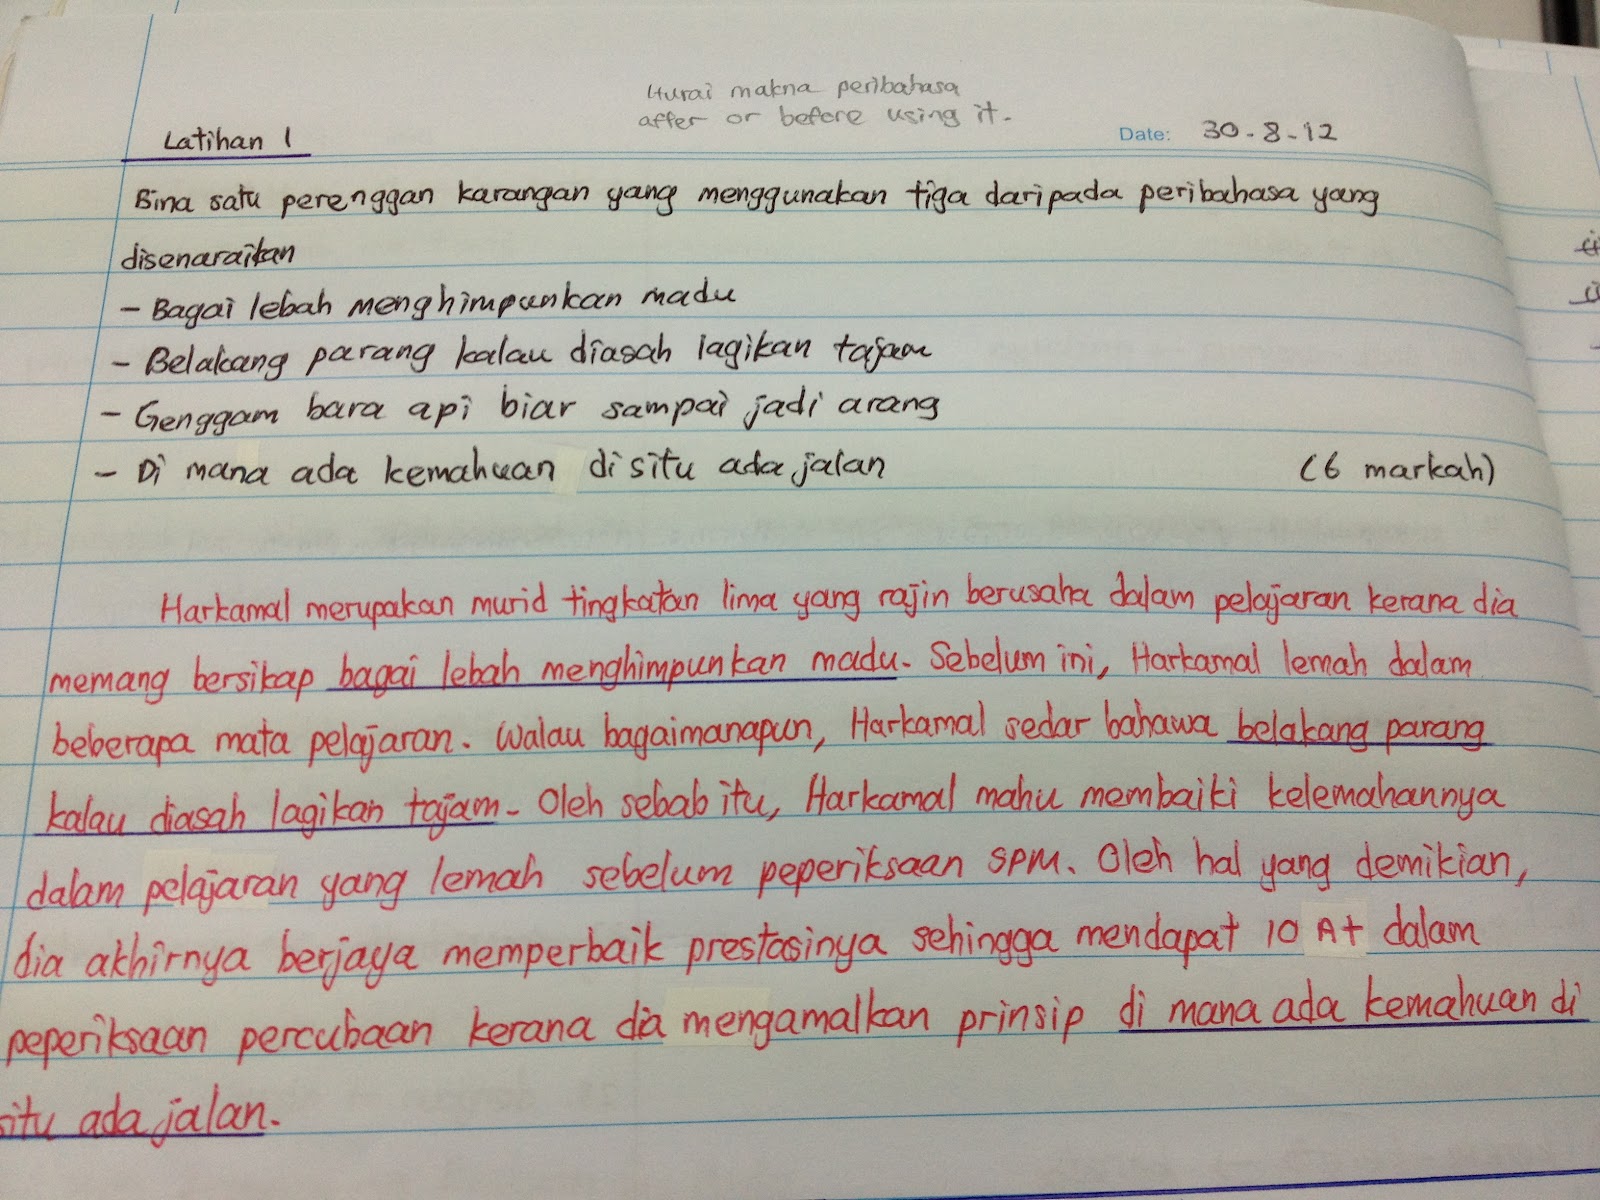 Hurai makna peribahasa
after or before using it.
Latihan 1
Date: 30-8-12
Bina satu perenggan karangan yang menggunakan tiga daripada peribahasa yang
disenaraikan
- Bagai lebah menghimpunkan madu
- Belakang parang kalau diasah lagikan tajam
- Genggam bara api biar sampai jadi arang
- Di mana ada kemahuan di situ ada jalan (6 markah)
Harkamal merupakan murid tingkatan lima yang rajin berusaha dalam pelajaran kerana dia
memang bersikap bagai lebah menghimpunkan madu. Sebelum ini, Harkamal lemah dalam
beberapa mata pelajaran. Walau bagaimanapun, Harkamal sedar bahawa belakang parang
kalau diasah lagikan tajam. Oleh sebab itu, Harkamal mahu membaiki kelemahannya
dalam pelajaran yang lemah sebelum peperiksaan SPM. Oleh hal yang demikian,
dia akhirnya berjaya memperbaik prestasinya sehingga mendapat 10 A+ dalam
peperiksaan percubaan kerana dia mengamalkan prinsip di mana ada kemahuan di
situ ada jalan.